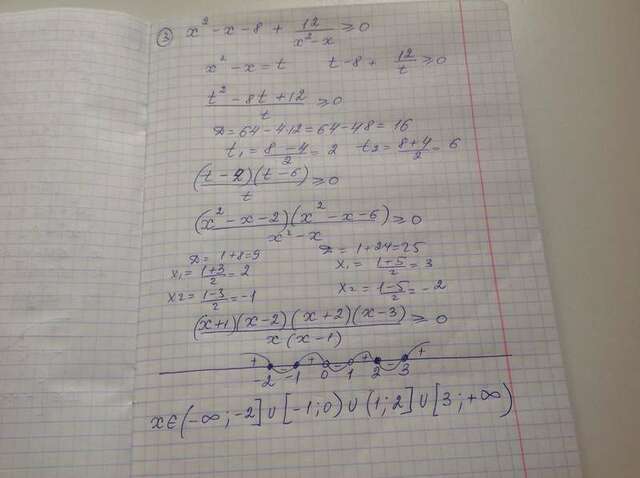 ③ x² - x - 8 + 12/(x² - x) ≥ 0
x² - x = t   t - 8 + 12/t ≥ 0
(t² - 8t + 12)/t ≥ 0
D = 64 - 4·12 = 64 - 48 = 16
t₁ = (8 - 4)/2 = 2   t₂ = (8 + 4)/2 = 6
(t - 2)(t - 6)/t ≥ 0
(x² - x - 2)(x² - x - 6)/(x² - x) ≥ 0
D = 1 + 8 = 9   D = 1 + 24 = 25
x₁ = (1 + 3)/2 = 2   x₁ = (1 + 5)/2 = 3
x₂ = (1 - 3)/2 = -1   x₂ = (1 - 5)/2 = -2
(x + 1)(x - 2)(x + 2)(x - 3)/(x(x - 1)) ≥ 0
+ - + - + - +
-2 -1 0 1 2 3
x ∈ (-∞; -2] ∪ [-1; 0) ∪ (1; 2] ∪ [3; +∞)